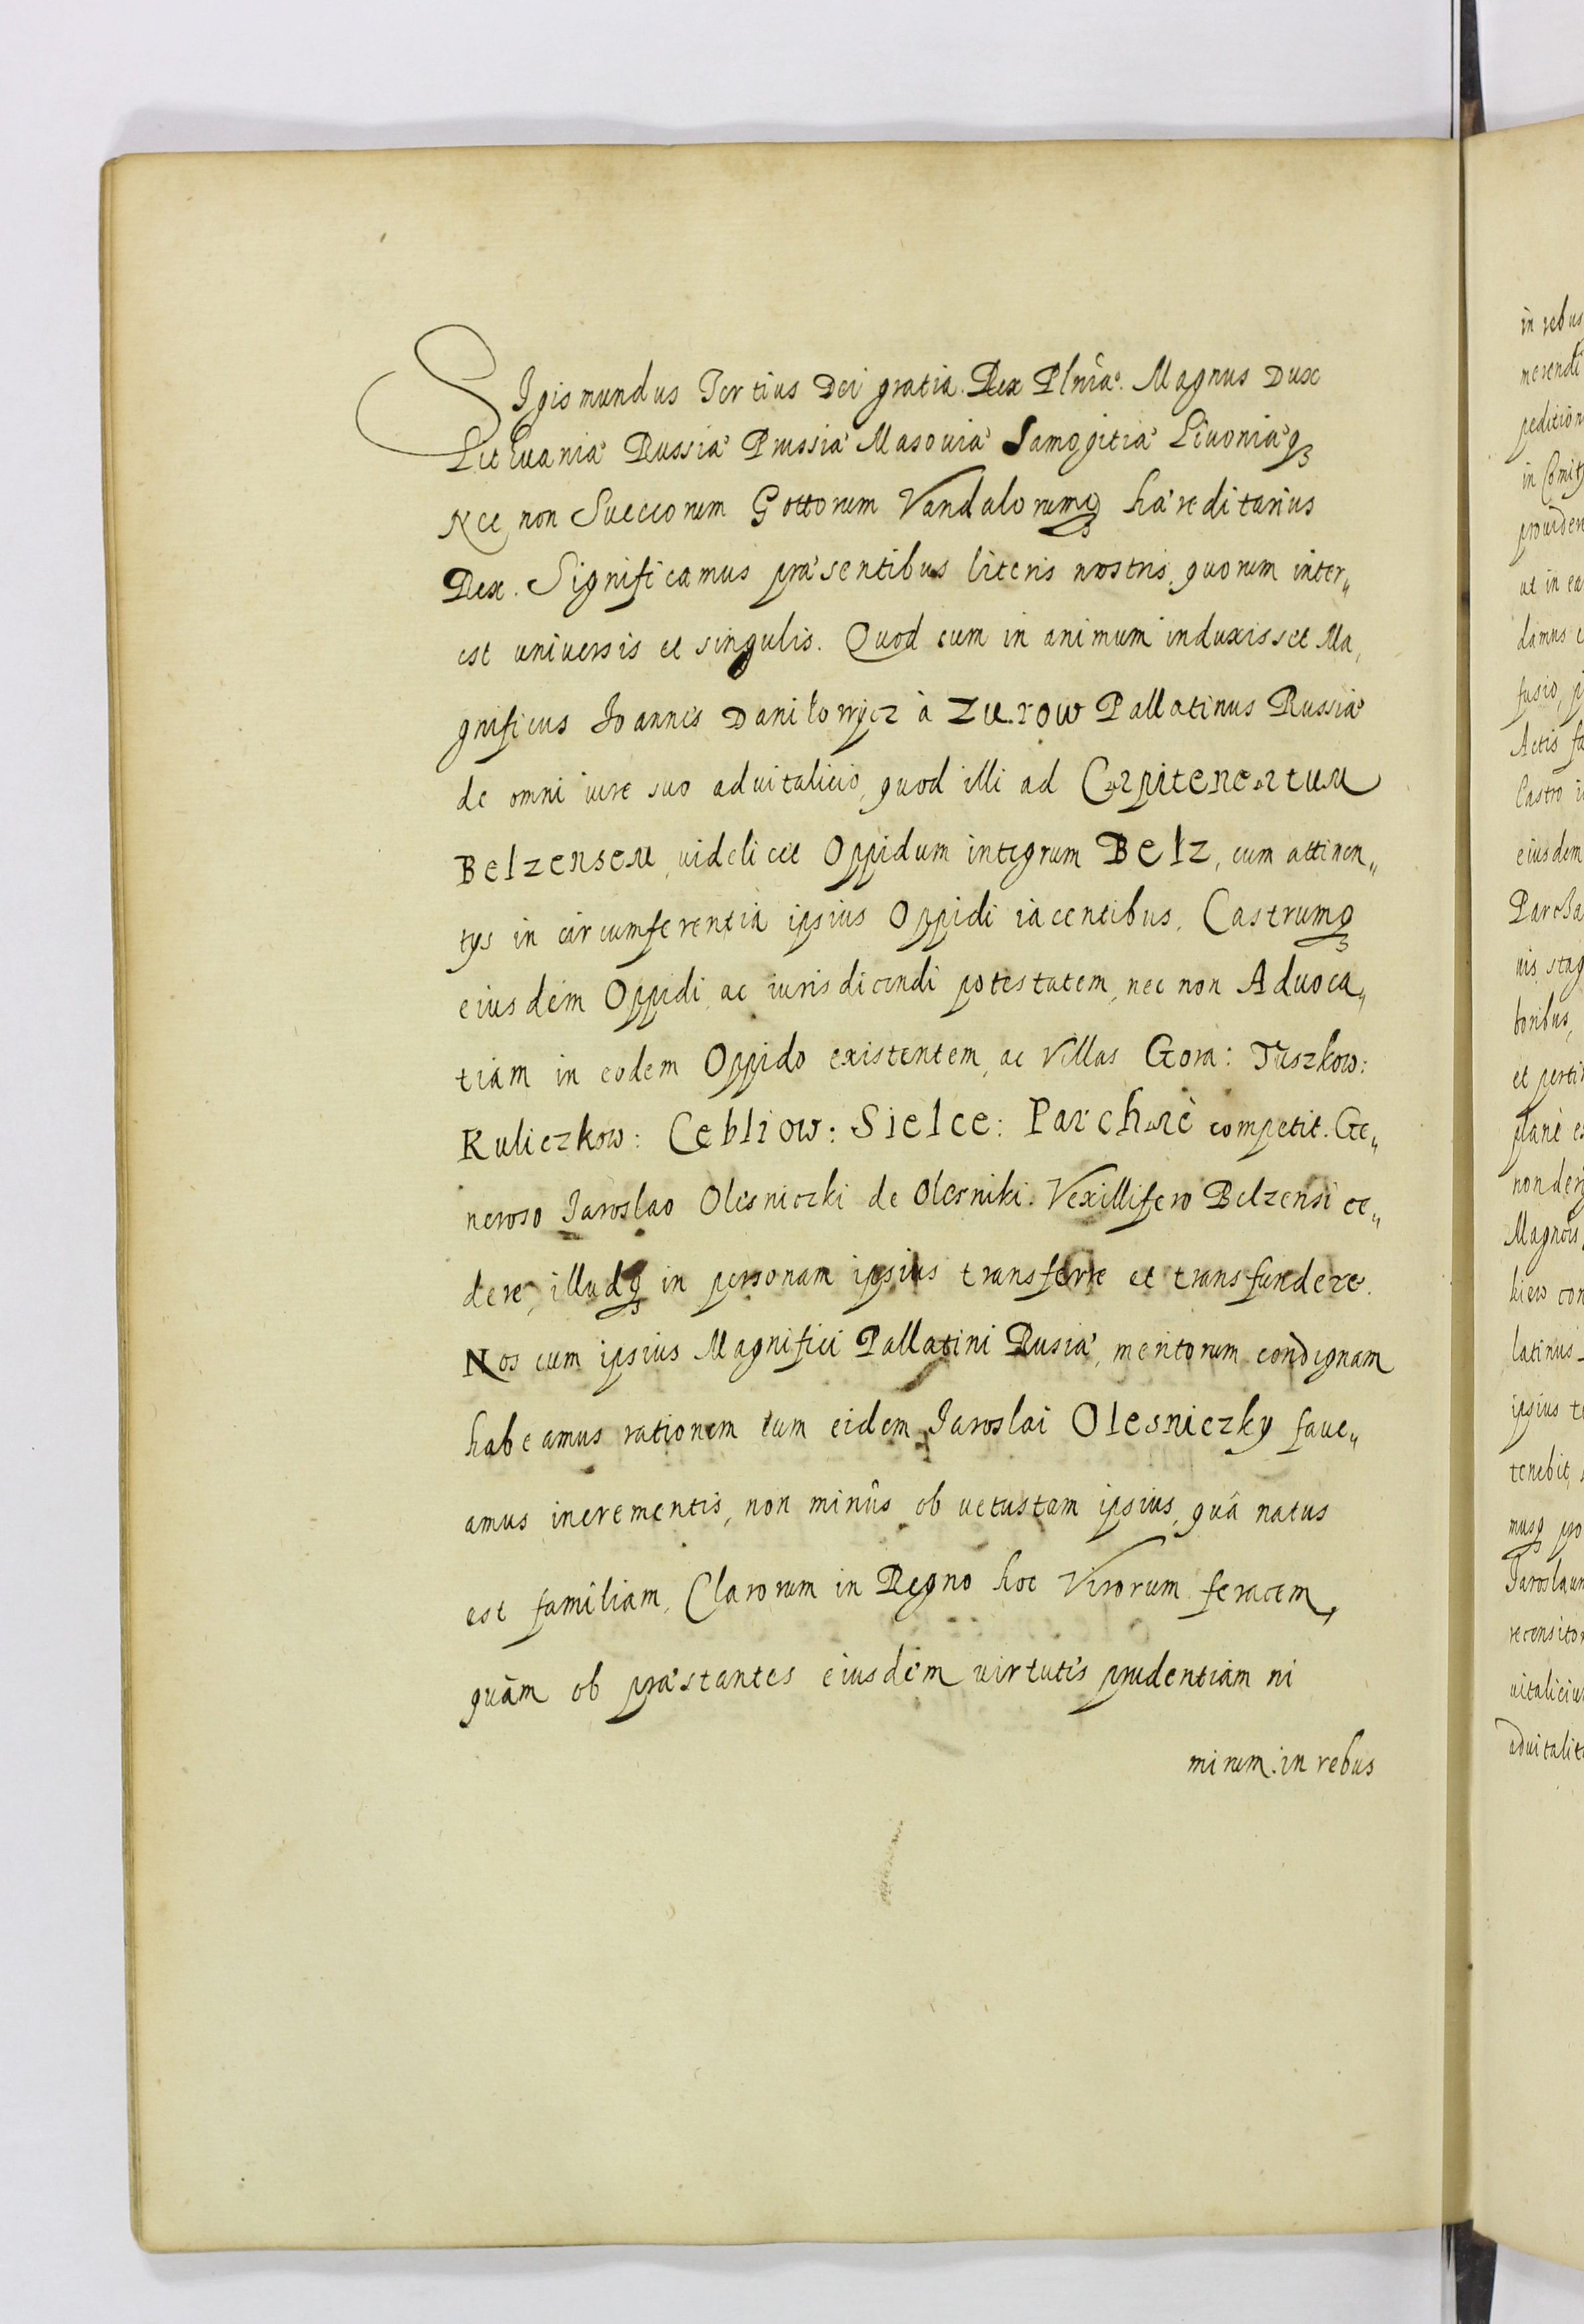 SIgismundus Tertius Dei gratia Rex Plniæ. Magnus Dux
Lithuaniæ Russiæ Prussiæ Masouiæ Samogitiæ Liuoniæq3
Nec non Suecorum Gottorum Vandalorumq3 hæreditarius
Rex. Significamus præsentibus literis nostris, quorum inter„
est uniuersis et singulis. Quod cum in animum induxisset Ma„
gnificus Joannes Daniłowycz à Zurow Pallatinus Russiæ
de omni iure suo aduitalicio, quod illi ad Capiteneatum
Belzensem, uidelicet Oppidum integrum Belz, cum attinen„
tys in circumferentia ipsius Oppidi iacentibus, Castrumq3
eiusdem Oppidi, ac iurisdicendi potestatem, nec non Aduoca„
tiam in eodem Oppido existentem, ac Villas Gora: Tuszkow:
Kuliczkow: Cebliow: Sielce: Parchacè competit. Ge„
neroso Jaroslao Olesniczki de Olesniki. Vexillifero Belzensi ce„
dere, illudq3 in personam ipsius transferre et transfundere.
Nos cum ipsius Magnifici Pallatini Rusiæ, meritorum condignam
habeamus rationem tum eidem Jaroslai Olesniczky faue„
amus incrementis, non minûs ob uetustam ipsius, quâ natus
est familiam, Clarorum in Regno hoc Virorum feracem,
quàm ob præstantes eiusdem uirtutis prudentiam ni
mirum in rebus
in rebus
merendi
pedition
in Comity
prouidere
ut in ea
damus
Actis fa
Castro
eiusdem
Parcha
uis, stag
boribus,
et perti
planè
Magnos
kiew con
latinus
ipsius te
tenebit,
musq3 pro
Jaroslaum
recensitor
uitalicium
aduitalit